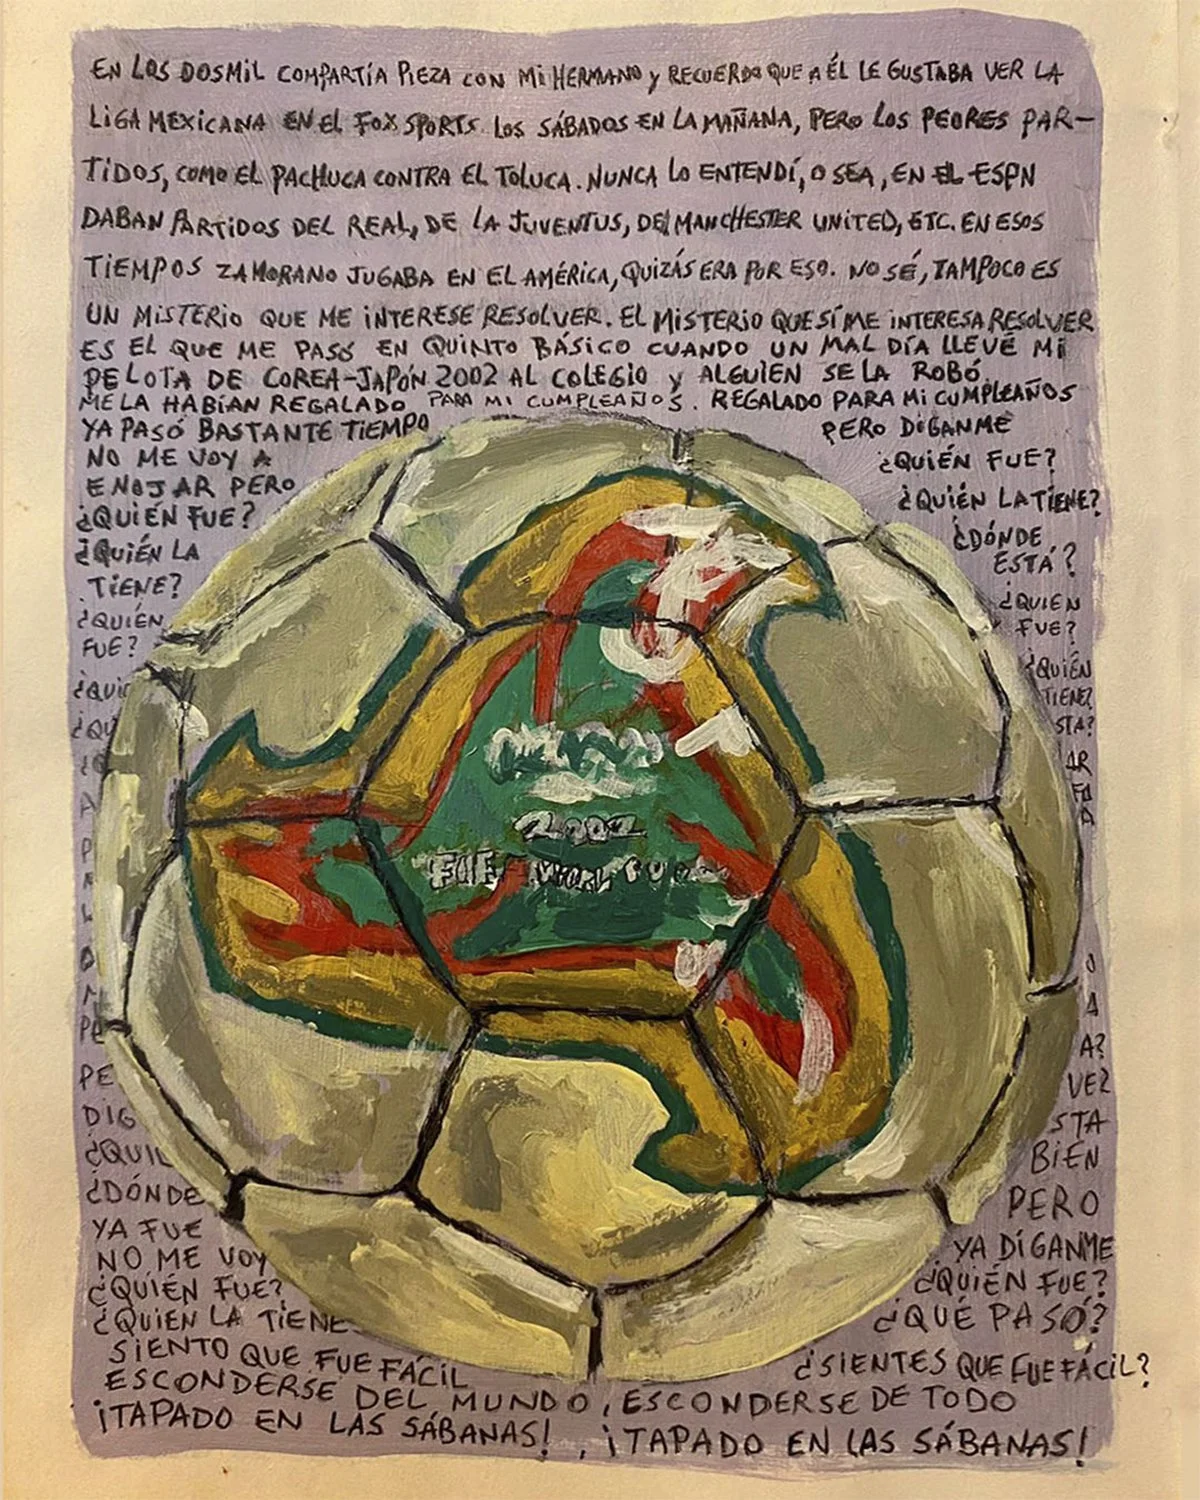 EN LOS DOSMIL COMPARTÍA PIEZA CON MI HERMANO y RECUERDO QUE A ÉL LE GUSTABA VER LA
LIGA MEXICANA EN EL FOX SPORTS LOS SÁBADOS EN LA MAÑANA, PERO LOS PEORES PAR-
TIDOS, COMO EL PACHUCA CONTRA EL TOLUCA. NUNCA LO ENTENDÍ, O SEA, EN EL ESPN
DABAN PARTIDOS DEL REAL, DE LA JUVENTUS, DEL MANCHESTER UNITED, ETC. EN ESOS
TIEMPOS ZAMORANO JUGABA EN EL AMÉRICA, QUIZÁS ERA POR ESO. NO SÉ, TAMPOCO ES
UN MISTERIO QUE ME INTERESE RESOLVER. EL MISTERIO QUE SÍ ME INTERESA RESOLVER
ES EL QUE ME PASÓ EN QUINTO BÁSICO CUANDO UN MAL DÍA LLEVÉ MI
PELOTA DE COREA-JAPÓN 2002 AL COLEGIO y ALGUIEN SE LA ROBÓ
ME LA HABÍAN REGALADO PARA MI CUMPLEAÑOS. REGALADO PARA MI CUMPLEAÑOS
YA PASÓ BASTANTE TIEMPO PERO DÍGANME
NO ME VOY A ¿QUIÉN FUE?
ENOJAR PERO ¿QUIÉN LA TIENE?
¿QUIÉN FUE? ¿DÓNDE
¿QUIÉN LA ESTÁ?
TIENE? ¿QUIEN
¿QUIÉN FUE?
FUE? ¿QUIÉN
¿QUI TIENE?
¿QU STA?
AR
2002
PE
PE A?
DIG VEZ
STA
¿QUIE BIEN
¿DÓNDE PERO
YA FUE
NO ME VOY YA DÍGANME
¿QUIÉN FUE? ¿QUIÉN FUE?
¿QUIEN LA TIENE ¿QUÉ PASÓ?
SIENTO QUE FUE FÁCIL ¿SIENTES QUE FUE FÁCIL?
ESCONDERSE DEL MUNDO, ESCONDERSE DE TODO
¡TAPADO EN LAS SÁBANAS!, ¡TAPADO EN LAS SÁBANAS!